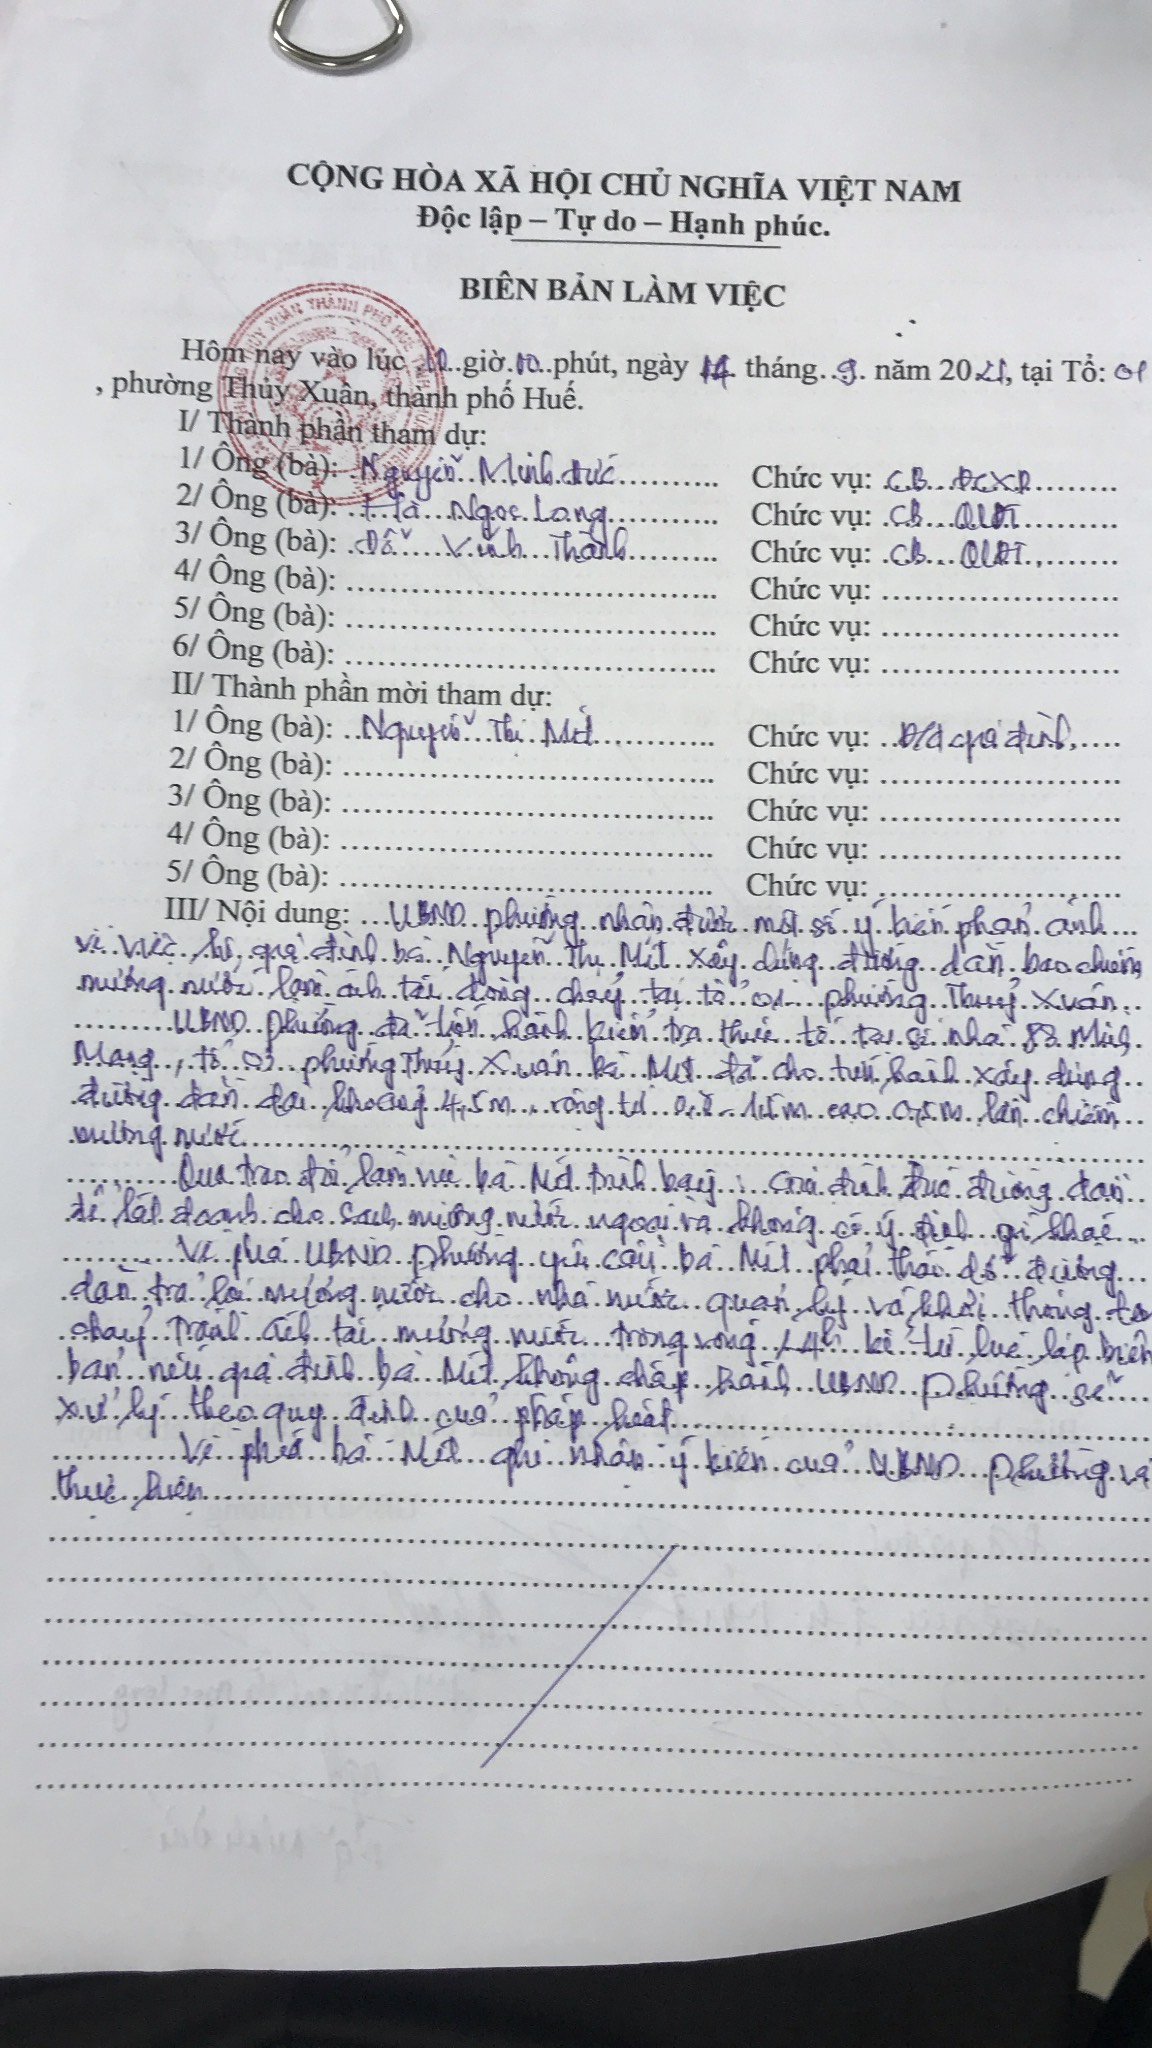 CỘNG HÒA XÃ HỘI CHỦ NGHĨA VIỆT NAM
Độc lập – Tự do – Hạnh phúc.
BIÊN BẢN LÀM VIỆC
Hôm nay vào lúc 10 giờ 00 phút, ngày 14 tháng 9 năm 2021, tại Tổ: 01
, phường Thủy Xuân, thành phố Huế.
I/ Thành phần tham dự:
1/ Ông (bà): Nguyễn Minh Đức Chức vụ: CB ĐCXD
2/ Ông (bà): Hà Ngọc Long Chức vụ: CB QLĐT
3/ Ông (bà): Đỗ Vĩnh Thành Chức vụ: CB QLĐT
4/ Ông (bà): Chức vụ:
5/ Ông (bà): Chức vụ:
6/ Ông (bà): Chức vụ:
II/ Thành phần mời tham dự:
1/ Ông (bà): Nguyễn Thị Mít Chức vụ: Đ/d gia đình
2/ Ông (bà): Chức vụ:
3/ Ông (bà): Chức vụ:
4/ Ông (bà): Chức vụ:
5/ Ông (bà): Chức vụ:
III/ Nội dung: UBND phường nhận được một số ý kiến phản ánh
về việc hộ gia đình bà Nguyễn Thị Mít xây dựng đường dẫn bao chiếm
mương nước làm ách tắc dòng chảy tại tổ 01 phường Thuỷ Xuân
UBND phường đã tiến hành kiểm tra thực tế tại số nhà 88 Minh
Mạng, tổ 01 phường Thủy Xuân bà Mít đã cho tiến hành xây dựng
đường dẫn dài khoảng 4,5m, rộng từ 0,8 - 1,5m cao 0,5m lấn chiếm
mương nước
Qua trao đổi làm việc bà Mít trình bày: Gia đình đúc đường dẫn
để lát doanh cho sạch mương nước ngoài ra không có ý định gì khác
Về phía UBND phường yêu cầu bà Mít phải tháo dỡ đường
dẫn trả lại mương nước cho nhà nước quản lý và khơi thông
chảy tránh ách tắc mương nước trong vòng 24h kể từ lúc lập biên
bản nếu gia đình bà Mít không chấp hành UBND phường sẽ
xử lý theo quy định của pháp luật
Về phía bà Mít ghi nhận ý kiến của UBND phường và
thực hiện